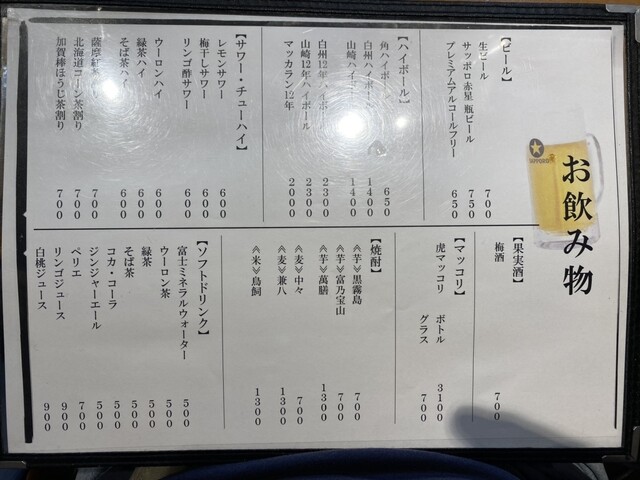 お飲み物
【ビール】
生ビール 700
サッポロ赤星 瓶ビール 750
プレミアムアルコールフリー 650
【ハイボール】
角ハイボール 650
白州ハイボール 1400
山崎ハイボール 1400
白州12年ハイボール 2300
山崎12年ハイボール 2300
マッカラン12年 2000
【サワー・チューハイ】
レモンサワー 600
梅干しサワー 600
リンゴ酢サワー 600
ウーロンハイ 600
緑茶ハイ 600
そば茶ハイ 600
薩摩紅茶割り 700
北海道コーン茶割り 700
加賀棒ほうじ茶割り 700
【果実酒】
梅酒 700
【マッコリ】
虎マッコリ ボトル 3100
グラス 700
【焼酎】
《芋》黒霧島 700
《芋》富乃宝山 700
《芋》萬膳 1300
《麦》中々 700
《麦》兼八 1300
《米》鳥飼 1300
【ソフトドリンク】
富士ミネラルウォーター 500
ウーロン茶 500
緑茶 500
そば茶 500
コカ・コーラ 500
ジンジャーエール 500
ペリエ 700
リンゴジュース 900
白桃ジュース 900